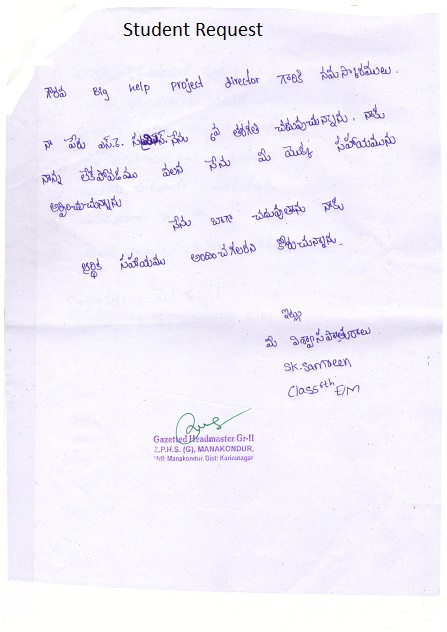 Student Request
గౌరవ Big Help project director గారికి నమస్కారములు.
నా పేరు ఎస్.కె. నేను వ తరగతి చదువుచున్నాను. నాకు
నాన్న లేకపోవడము వలన నేను మీ యొక్క సహాయమును
అర్థించుచున్నాను
నేను బాగా చదువుతాను నాకు
ఆర్థిక సహాయము అందించగలరని కోరుచున్నాను.
ఇట్లు
మీ విశ్వాసపాత్రురాలు
SK.Samreen
Class th E/M
Gazetted Headmaster Gr-II
Z.P.H.S. (G), MANAKONDUR,
Mdl: Manakondor Dist: Karimnagar